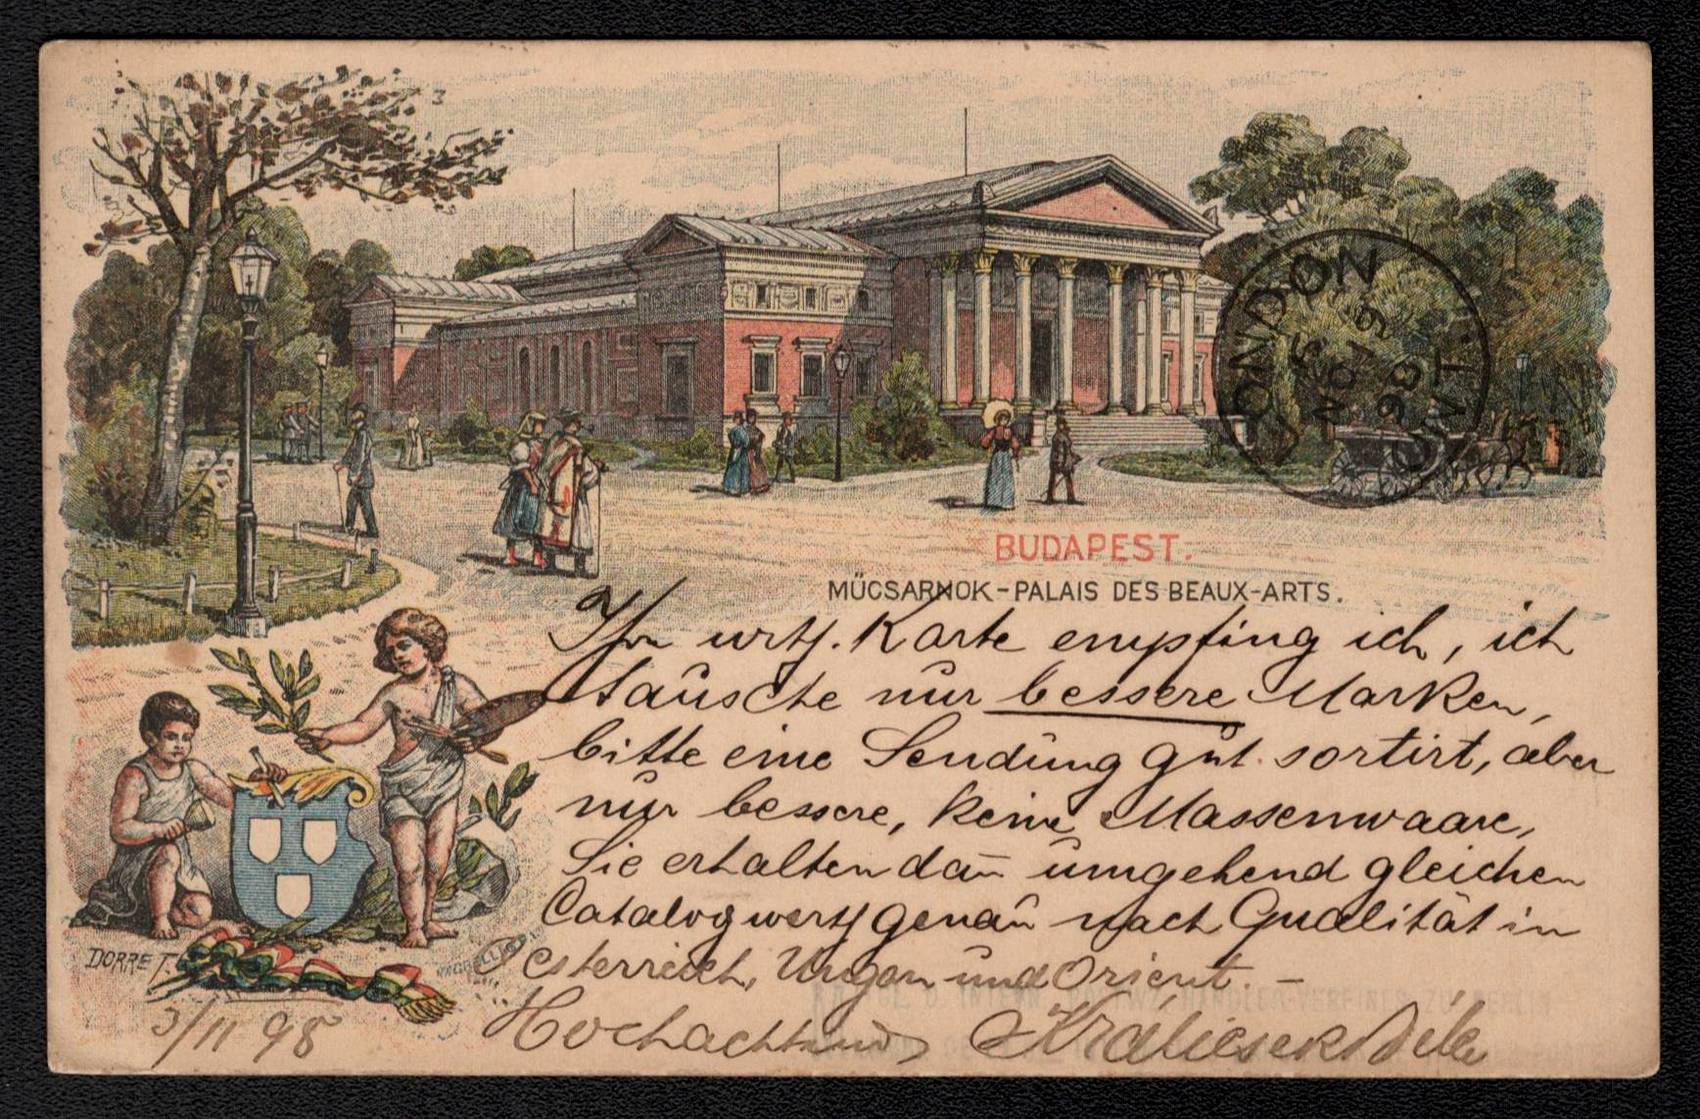 BUDAPEST.
MŰCSARNOK-PALAIS DES BEAUX-ARTS.
LONDON
Ihr wrth. Karte empfing ich, ich
tausche nur bessere Marken,
bitte eine Sendung gut sortirt, aber
nur bessere, keine Massenwaare,
Sie erhalten dan̄ umgehend gleichen
Catalogwerth genau nach Qualität in
Oesterreich, Ungar und Orient. –
Hochachtend
DORRE T.
3/11 98